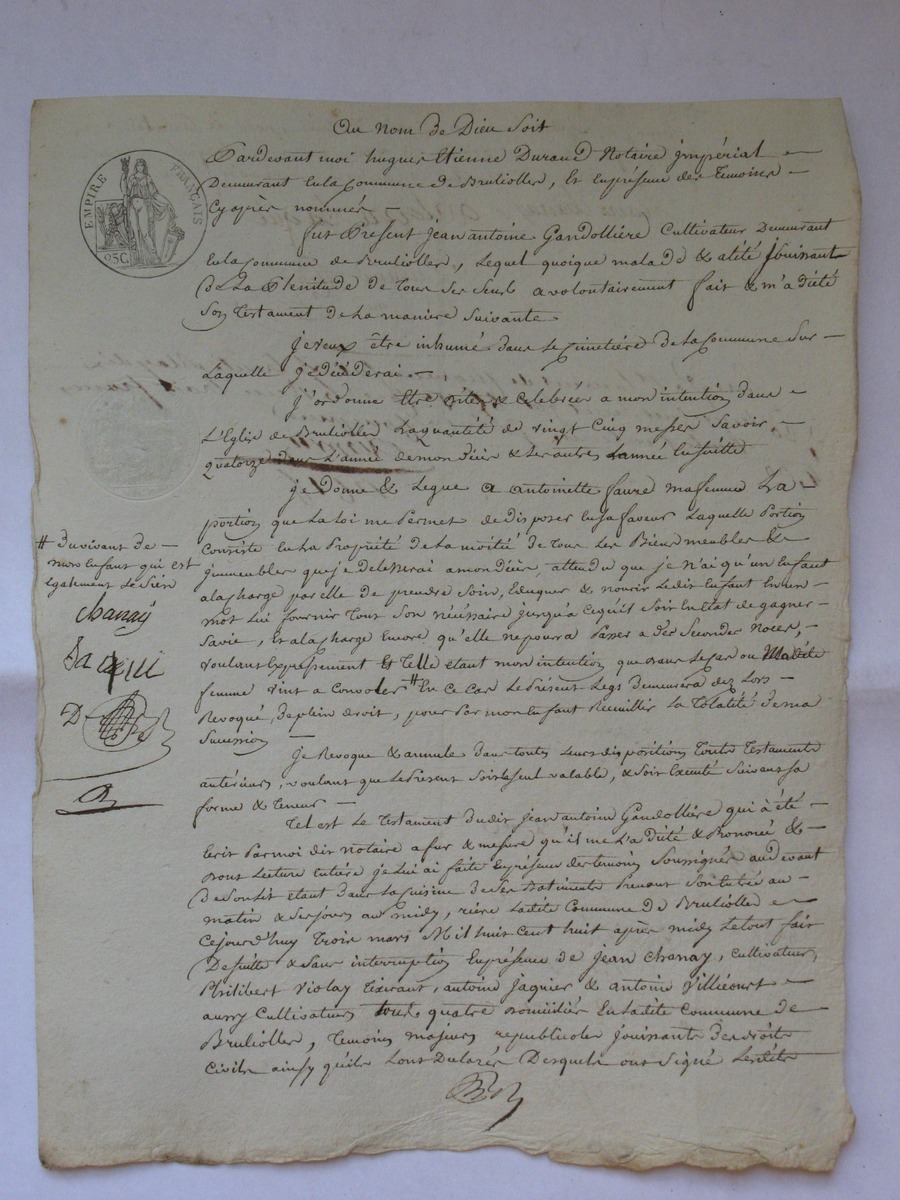 Au nom de Dieu soit
EMPIRE FRANÇAIS
25C.
Pardevant moi hugues Etienne Durand Notaire impérial
Demeurant en la Commune de Brulioller, et en présence des temoins
Cy après nommés
fut Présent jean antoine Gandollière Cultivateur Demeurant
en la Commune de Brulioller, Lequel quoique malade & alité jouissant
De La Plenitude de tous ses sens a volontairement fait & m'a dicté
Son testament de la manière suivante
je veux être inhumé dans le cimetière de la Commune sur
Laquelle je déciderai.
j'ordonne être dites & celebrées a mon intention dans
L'Eglise de Brulioller La quantité de vingt cinq messes Savoir,
quatorze dans L'année de mon décès & les autres L'année en suitte
je donne & Legue a antoinette faure ma femme La
portion que La loi me Permet de disposer en sa faveur Laquelle Portion
Consiste en La Propriété de la moitié de tous Les Biens meubles &
immeubles que je delesserai a mon décès, attendu que je n'ai qu'un enfant
a la charge par elle de prendre soin, Eduquer & nourir Ledit Enfant en un
mot Lui fournir tout son nécéssaire jusqu'a ce qu'il soit en Etat de gagner
Sa vie, Et a la charge Encore qu'elle ne poura Passer a des secondes Noces,
voulant Expressement Et telle etant mon intention que dans Le Cas ou Madite
femme vint a convoler # En ce cas Le Présent Legs demeurera dez Lors
Revoqué de plein droit, pour Par mon Enfant Recuillir La totalité de ma
Sucession
# du vivant de
mon enfant qui est
egalement le sien
Chanaÿ
Jaquié
D
je Revoque & annule dans toutes Leurs dispositions touts testaments
antérieurs, voulant que le Présent soit le seul valable, & soit Executé suivant sa
forme & teneur
tel est Le testament dudit jean antoine Gandollière qui à été
Ecrit Par moi dit notaire a fur & mesure qu'il me L'a dicté & Prononcé &
dont Lecture entière je Lui ai faite En présence des temoins soussignés au devant
De son Lit etant dans La cuisine de ses Batiments Prenant son entrée au
matin & ses jours au midy, rière Ladite Commune de Brulioller
Cejourd'huy trois mars Mil huit cent huit après midy Le tout fait
De suitte & sans interruption En présence de jean Chanay, cultivateur,
Philibert Violay tixerant, antoine jaquier & antoine Villécourt
aussy Cultivateurs tous quatre domiciliés En Ladite Commune de
Brulioller, temoins majeurs republicoles jouissants des droits
Civils ainsy qu'ils L'ont Declaré Desquels ont signé Lesdits